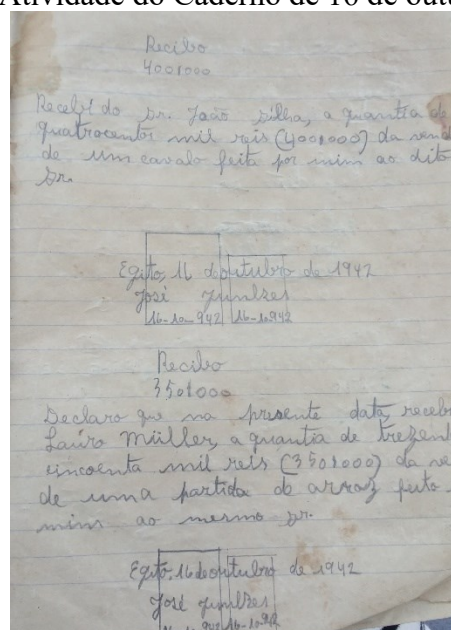 Atividade do Caderno de 16 de outu
Recibo
400$000
Recebi do Sr. João Silha, a quantia de
quatrocentos mil reis (400$000) da vend
de um cavalo feita por mim ao dito
Sr.
Egito, 16 de outubro de 1942
José
16-10-942 16-10-942
Recibo
350$000
Declaro que na presente data, receb
Lauro Müller, a quantia de trezent
cincoenta mil reis (350$000) da ve
de uma partida de arroz feita
mim ao mesmo Sr.
Egito, 16 de outubro de 1942
José
16-10-942